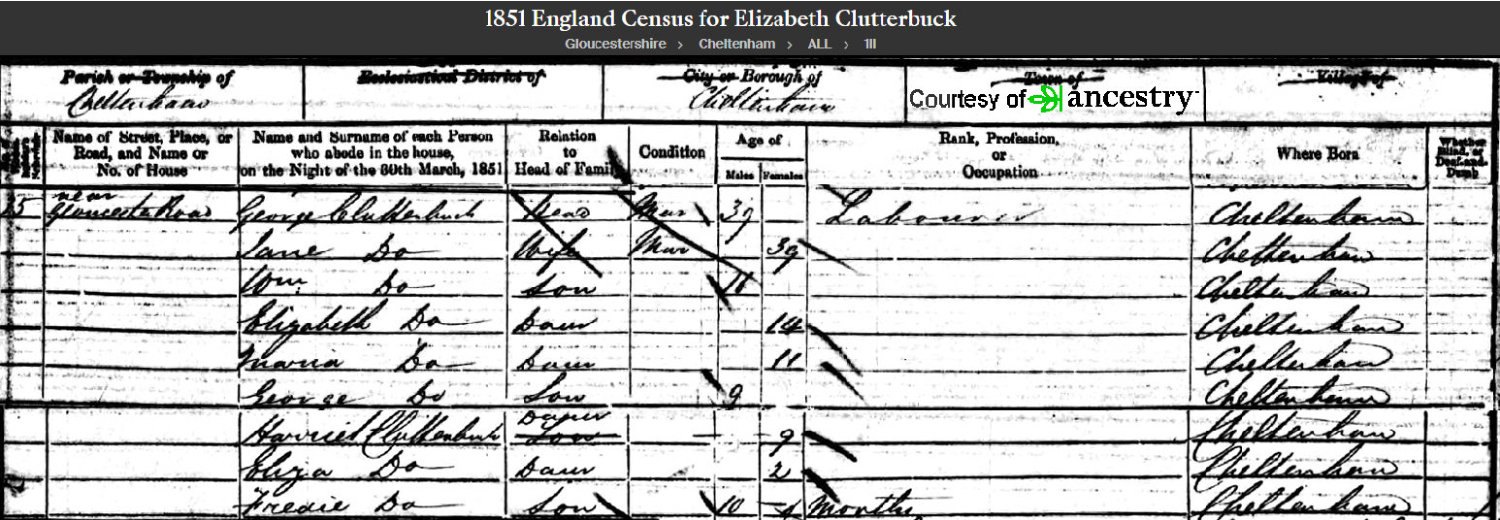 1851 England Census for Elizabeth Clutterbuck
Gloucestershire > Cheltenham > ALL > 1ll
Parish or Township of Ecclesiastical District of City or Borough of Town of Village of
Cheltenham Cheltenham Courtesy of ancestry
Name of Street, Place, or Road, and Name or No. of House Name and Surname of each Person who abode in the house, on the Night of the 30th March, 1851 Relation to Head of Family Condition Age of Males Females Rank, Profession, or Occupation Where Born Whether Blind, or Deaf-and-Dumb
near
Gloucester Road George Clutterbuck Head Mar 39 Labourer Cheltenham
Jane Do Wife Mar 39 Cheltenham
Wm Do Son Cheltenham
Elizabeth Do Daur 14 Cheltenham
Maria Do Daur 11 Cheltenham
George Do Son 9 Cheltenham
Harriet Clutterbuck Daur Son 9 Cheltenham
Eliza Do Daur 2 Cheltenham
Fredie Do Son 10 Months Cheltenham